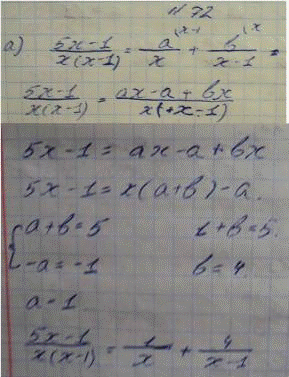 № 72
а) (5x-1)/(x(x-1)) = a^(x-1)/x + b^(x/(x-1) =
(5x-1)/(x(x-1)) = (ax-a+bx)/(x(+x-1))
5x-1 = ax-a+bx
5x-1 = x(a+b)-a.
{a+b=5 1+b=5.
-a=-1 b=4.
a=1
(5x-1)/(x(x-1)) = 1/x + 4/(x-1)